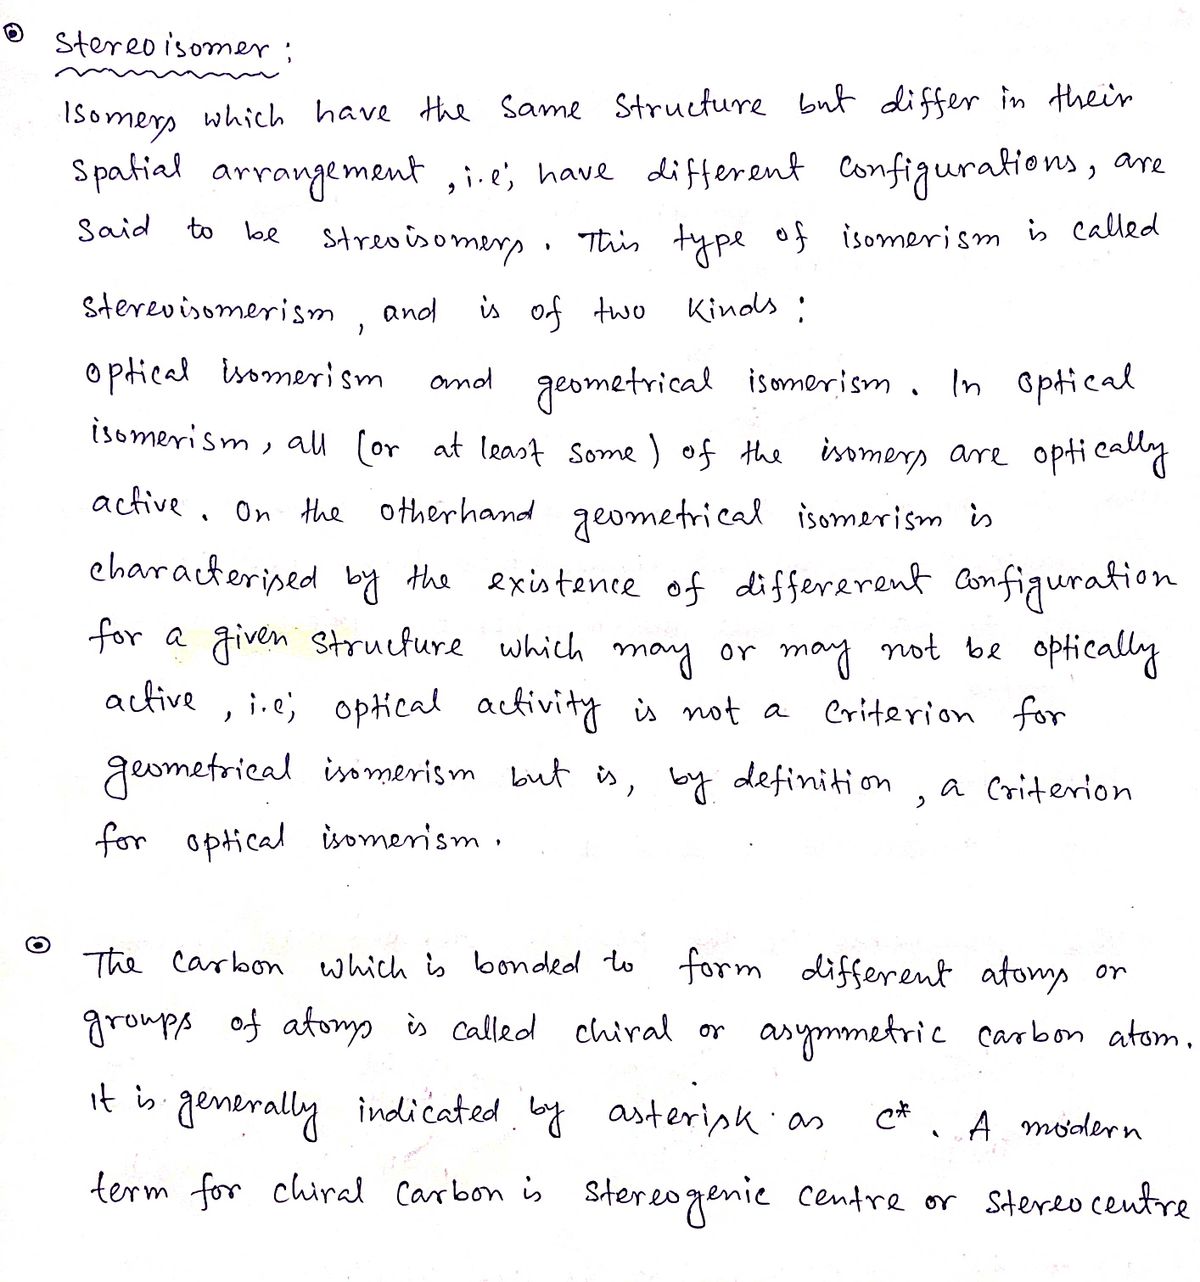 Stereoisomer :
Isomers which have the same structure but differ in their
spatial arrangement , i.e; have different configurations, are
said to be streoisomers . This type of isomerism is called
stereoisomerism , and is of two kinds :
optical isomerism and geometrical isomerism . In optical
isomerism , all (or at least some) of the isomers are optically
active . On the otherhand geometrical isomerism is
characterised by the existence of differerent configuration
for a given structure which may or may not be optically
active , i.e; optical activity is not a criterion for
geometrical isomerism but is, by definition , a criterion
for optical isomerism .
The carbon which is bonded to form different atoms or
groups of atoms is called chiral or asymmetric carbon atom.
it is generally indicated by asterisk as C* . A modern
term for chiral carbon is stereogenic centre or stereocentre